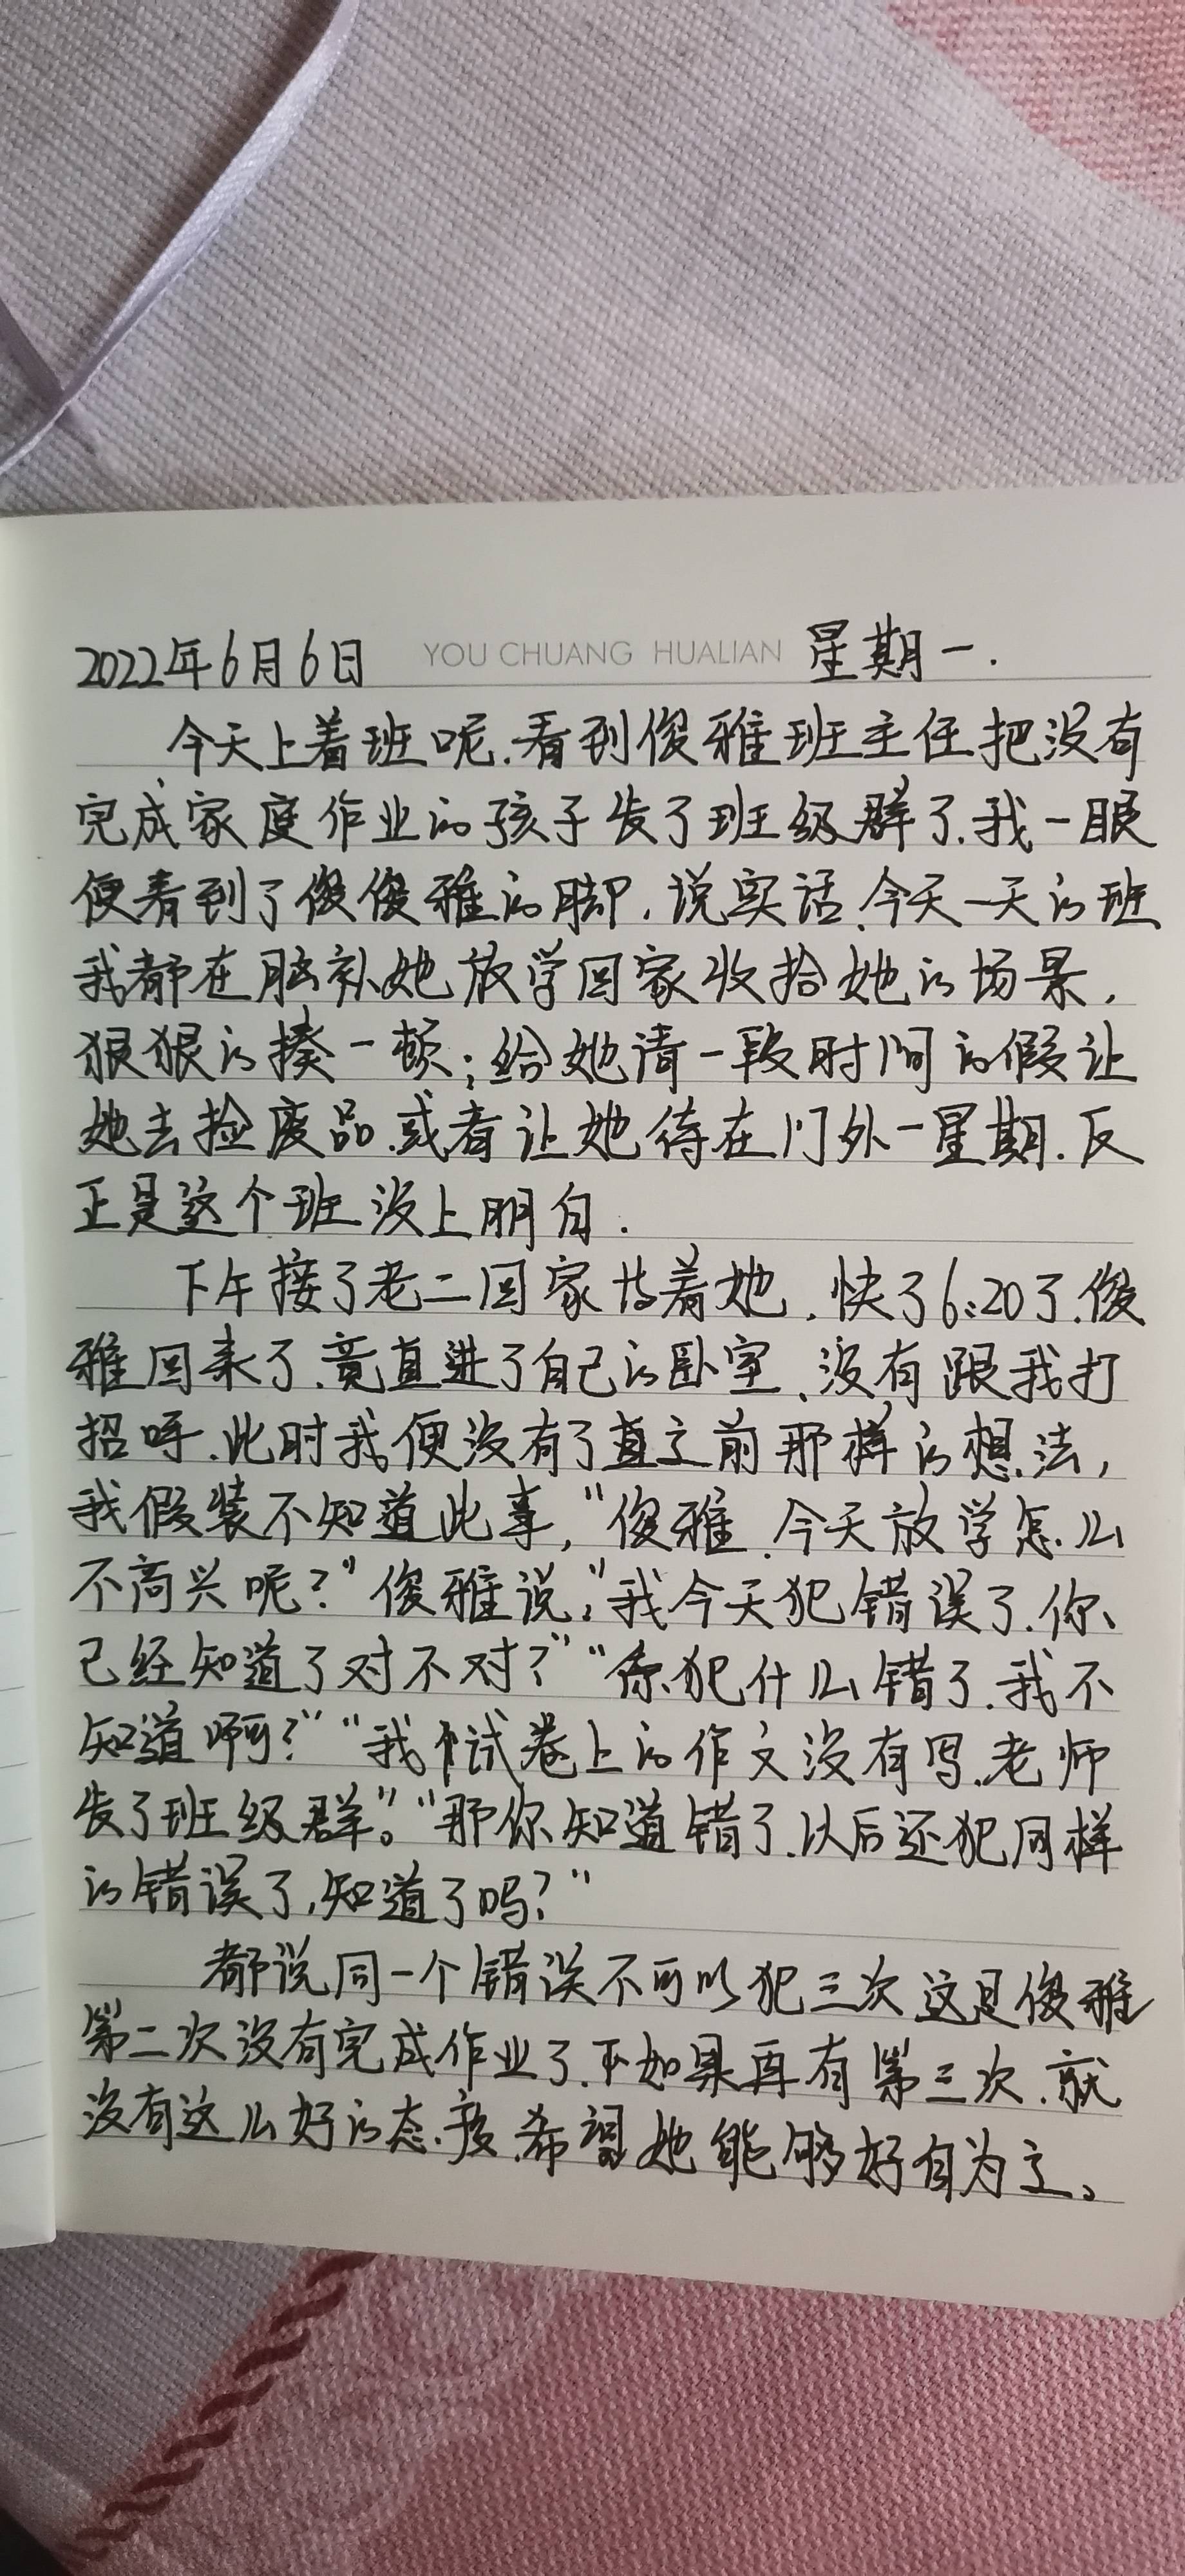 2022年6月6日 YOU CHUANG HUALIAN 星期一.
今天上着班呢.看到俊雅班主任把没有
完成家庭作业的孩子发了班级群了.我一眼
便看到了俊俊雅的脚.说实话.今天一天的班
我都在脑补她放学回家收拾她的场景,
狠狠的揍一顿;给她请一段时间的假让
她去捡废品.或者让她待在门外一星期.反
正是这个班没上明白.
下午接了老二回家 着她,快了6:20了.俊
雅回来了.竟直进了自己的卧室.没有跟我打
招呼.此时我便没有了直之前那样的想法,
我假装不知道此事,“俊雅.今天放学怎么
不高兴呢?”俊雅说,“我今天犯错误了.你
己经知道了对不对?”“你犯什么错了.我不
知道啊?”“我 试卷上的作文没有写.老师
发了班级群”。“那你知道错了.以后还犯同样
的错误了,知道了吗?”
都说同一个错误不可以犯三次这是俊雅
第二次没有完成作业了.不如果再有第三次.就
没有这么好的态度.希望她能够好自为之。